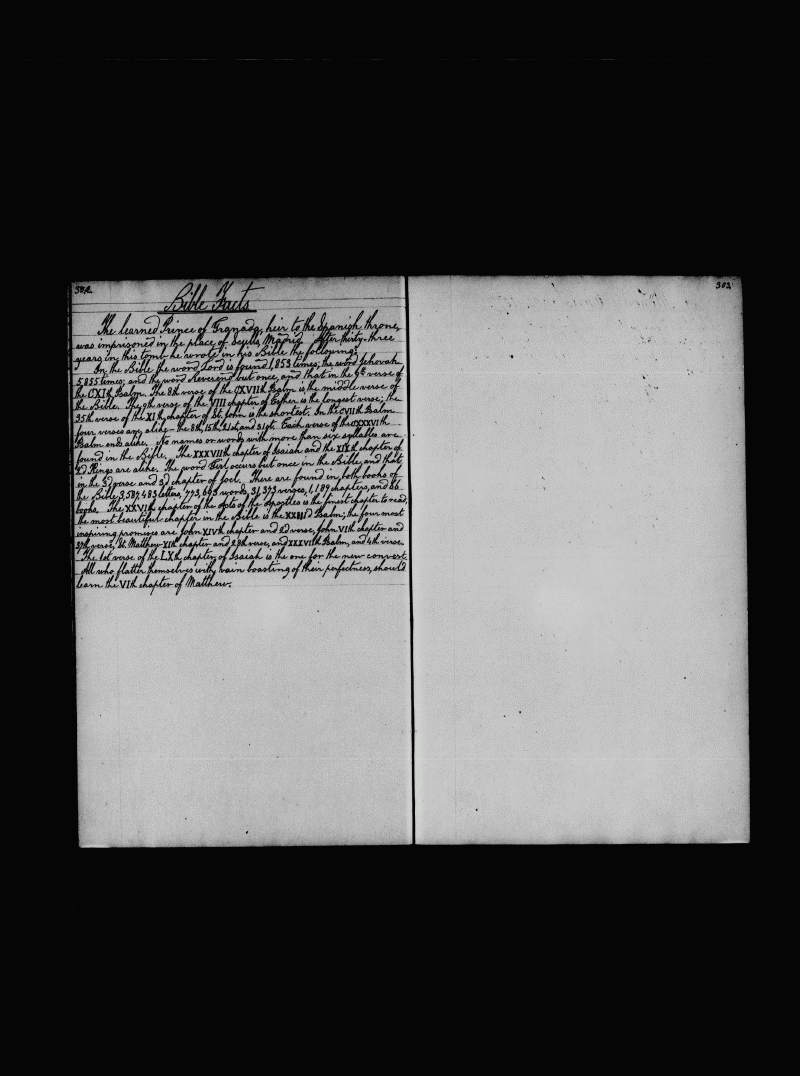 302
303
Bible Facts
The learned Prince of Granada, heir to the Spanish throne,
was imprisoned in the place of Sculls, Madrid. After thirty-three
years in this tomb he wrote in his Bible the following:
In the Bible the word Lord is found 1,853 times; the word Jehovah
5,855 times; and the word Reverend but once, and that in the 9th verse of
the CXIth Psalm. The 8th verse of the CXVIIth Psalm is the middle verse of
the Bible. The 9th verse of the VIII chapter of Esther is the longest verse; the
35th verse of the XIth chapter of St. John is the shortest. In the CVIIth Psalm
four verses are alike - the 8th, 15th, 21st, and 31st. Each verse of the CXXXVIth
Psalm ends alike. No names or words with more than six syllables are
found in the Bible. The XXXVIIth chapter of Isaiah and the XIXth chapter of
2d Kings are alike. The word Girl occurs but once in the Bible, and that
in the 3d verse and 3d chapter of Joel. There are found in both books of
the Bible 3,587,483 letters, 773,693 words, 31,373 verses, 1,189 chapters, and 66
books. The XXVIth chapter of the Acts of the Apostles is the finest chapter to read;
the most beautiful chapter in the Bible is the XXIIId Psalm; the four most
inspiring promises are John XIVth chapter and 2d verse, John VIth chapter and
37th verse, St. Matthew XIth chapter and 28th verse, and XXXVIIth Psalm, and 4th verse.
The 1st verse of the LXth chapter of Isaiah is the one for the new convert.
All who flatter themselves with vain boasting of their perfectness, should
learn the VIth chapter of Matthew.